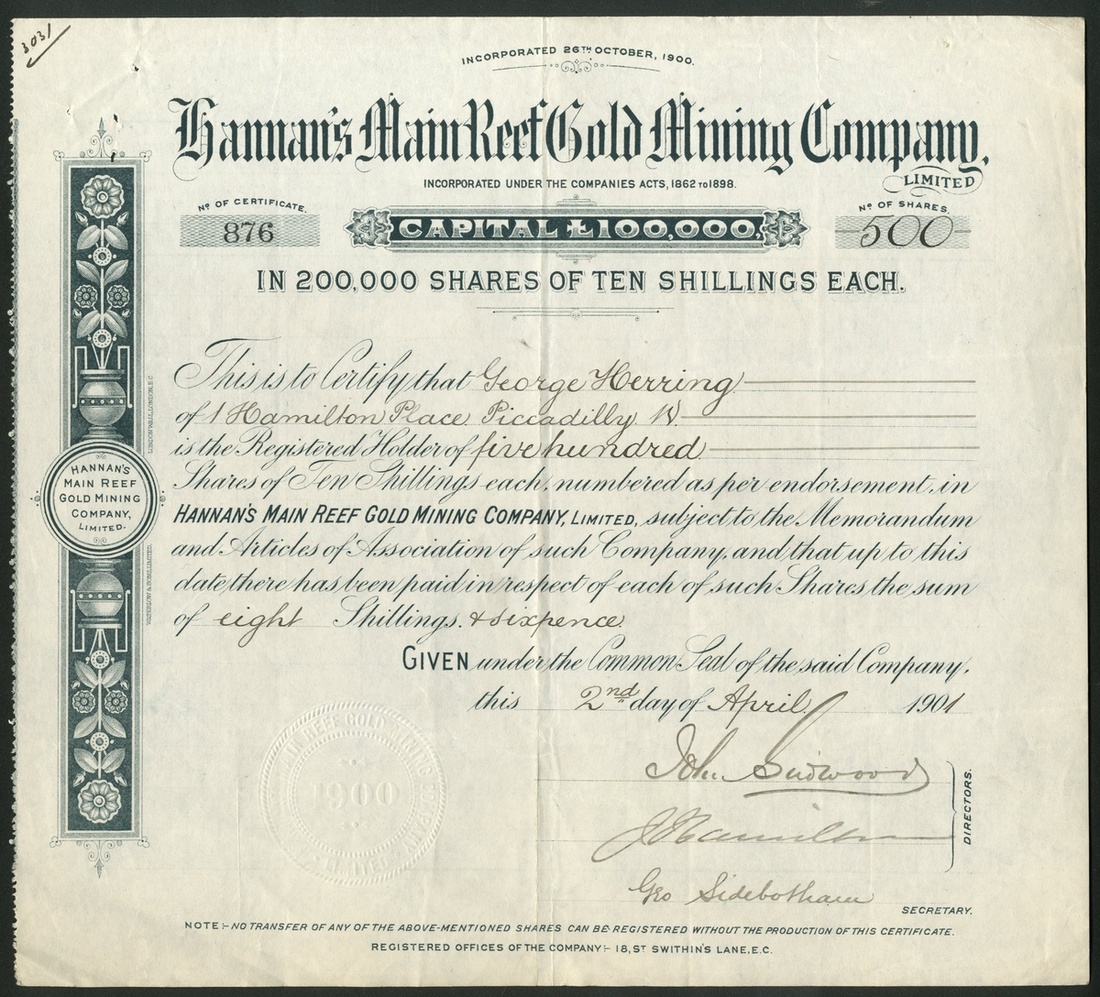 3031
INCORPORATED 26TH OCTOBER, 1900.
Hannan's Main Reef Gold Mining Company,
LIMITED
INCORPORATED UNDER THE COMPANIES ACTS, 1862 TO 1898.
No OF CERTIFICATE.
876
CAPITAL £100,000,
No OF SHARES.
500
IN 200,000 SHARES OF TEN SHILLINGS EACH.
This is to Certify that George Herring
of 1 Hamilton Place Piccadilly W
is the Registered Holder of five hundred
Shares of Ten Shillings each, numbered as per endorsement, in
HANNAN'S MAIN REEF GOLD MINING COMPANY, LIMITED, subject to the Memorandum
and Articles of Association of such Company, and that up to this
date there has been paid in respect of each of such Shares the sum
of eight Shillings. & sixpence
GIVEN under the Common Seal of the said Company,
this 2nd day of April 1901
HANNAN'S
MAIN REEF
GOLD MINING
COMPANY,
LIMITED.
WATERLOW & SONS LIMITED,
LONDON WALL, LONDON, E.C.
MAIN REEF GOLD MINING COMPANY
LIMITED
1900
John
J Hamilton
DIRECTORS.
Geo Sidebotham
SECRETARY.
NOTE:- NO TRANSFER OF ANY OF THE ABOVE-MENTIONED SHARES CAN BE REGISTERED WITHOUT THE PRODUCTION OF THIS CERTIFICATE.
REGISTERED OFFICES OF THE COMPANY:- 18, ST SWITHIN'S LANE, E.C.